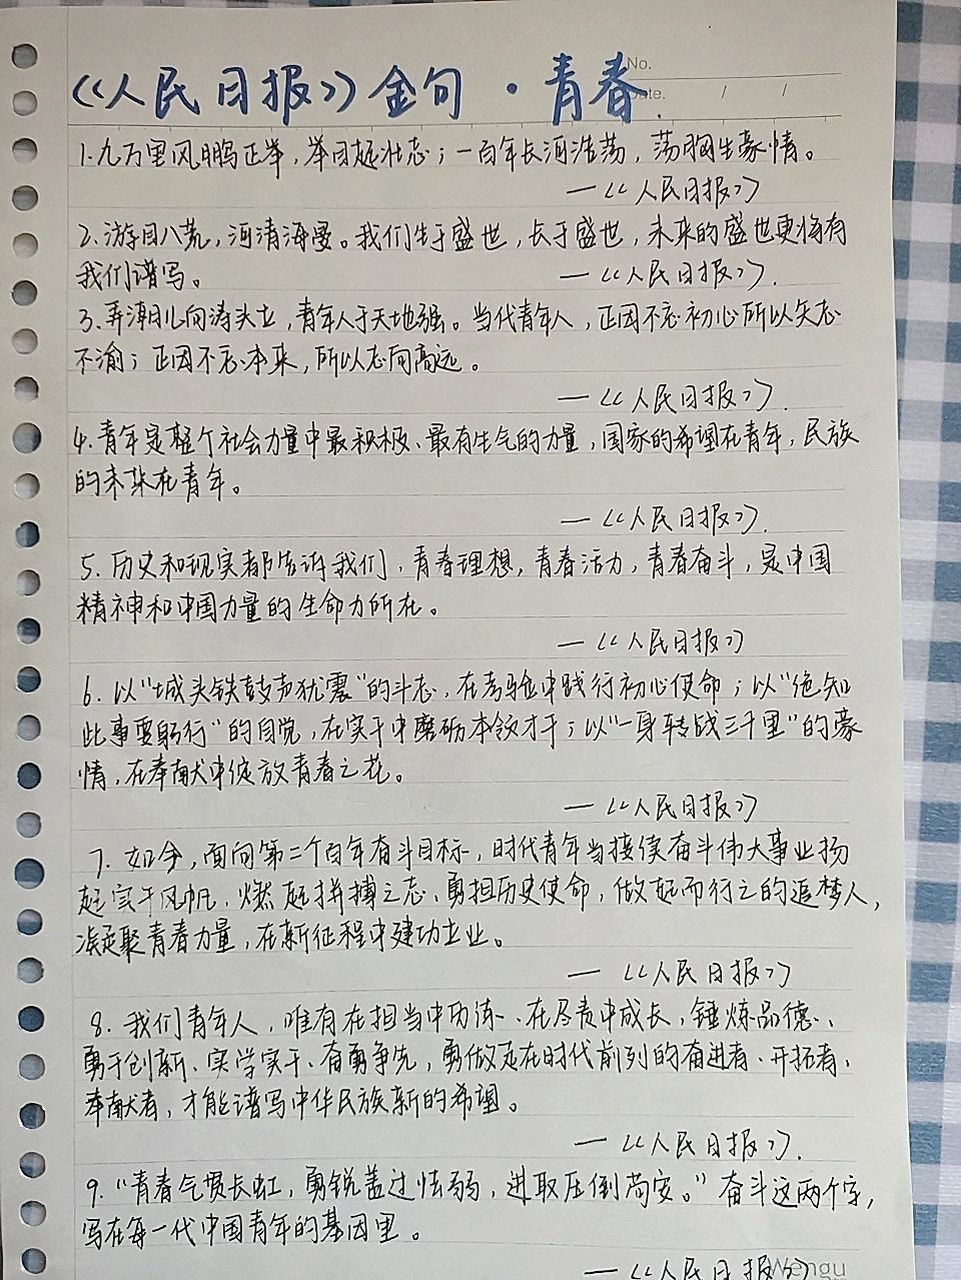 《人民日报》金句·青春
No.
Date. / /
1.九万里风鹏正举，举目起壮志；一百年长河浩荡，荡胸生豪情。
—《人民日报》
2.游目八荒，河清海晏。我们生于盛世，长于盛世，未来的盛世更将有
我们谱写。 —《人民日报》.
3.弄潮儿向涛头立，青年人于天地强。当代青年人，正因不忘初心所以矢志
不渝；正因不忘本来，所以志向高远。
—《人民日报》.
4.青年是整个社会力量中最积极、最有生气的力量，国家的希望在青年，民族
的未来在青年。
—《人民日报》.
5.历史和现实都告诉我们，青春理想，青春活力，青春奋斗，是中国
精神和中国力量的生命力所在。
—《人民日报》
6.以“城头铁鼓声犹震”的斗志，在考验中践行初心使命；以“绝知
此事要躬行”的自觉，在实干中磨砺本领才干；以“一身转战三千里”的豪
情，在奉献中绽放青春之花。
—《人民日报》
7.如今，面向第二个百年奋斗目标，时代青年当接续奋斗伟大事业扬
起实干风帆，燃起拼搏之志、勇担历史使命，做起而行之的追梦人，
凝聚青春力量，在新征程中建功立业。
—《人民日报》
8.我们青年人，唯有在担当中历练、在尽责中成长，锤炼品德、
勇于创新、实学实干、奋勇争先，勇做走在时代前列的奋进者、开拓者、
奉献者，才能谱写中华民族新的希望。
—《人民日报》.
9.“青春气贯长虹，勇锐盖过怯弱，进取压倒苟安。”奋斗这两个字，
写在每一代中国青年的基因里。
—《人民日报》
Wengu